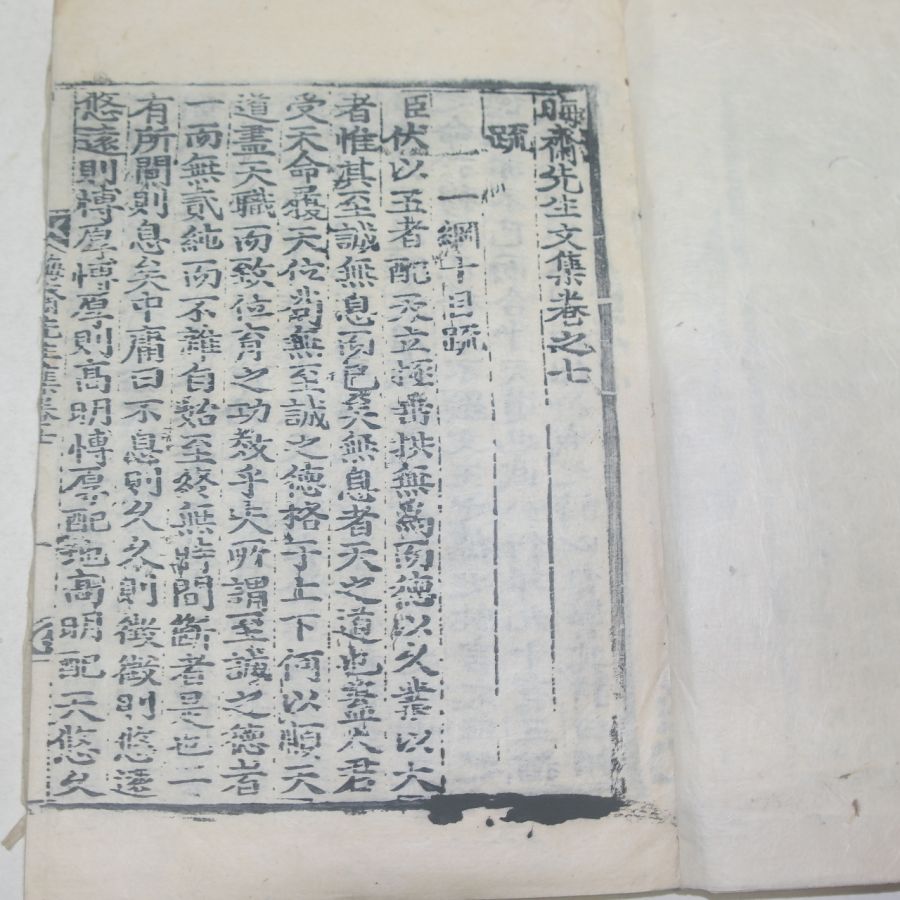 晦齋先生文集卷之七
疏
一綱十目疏
臣伏以王者配天立極垂拱無爲而德以久業以大
者惟其至誠無息而已矣無息者天之道也蓋人君
受天命履天位苟無至誠之德格于上下何以順天
道盡天職而致位育之功效乎夫所謂至誠之德者
一而無貳純而不雜自始至終無時間斷者是也二
有所間則息矣中庸曰不息則久久則徵徵則悠遠
悠遠則博厚博厚則高明博厚配地高明配天悠久
晦齋先生集卷七